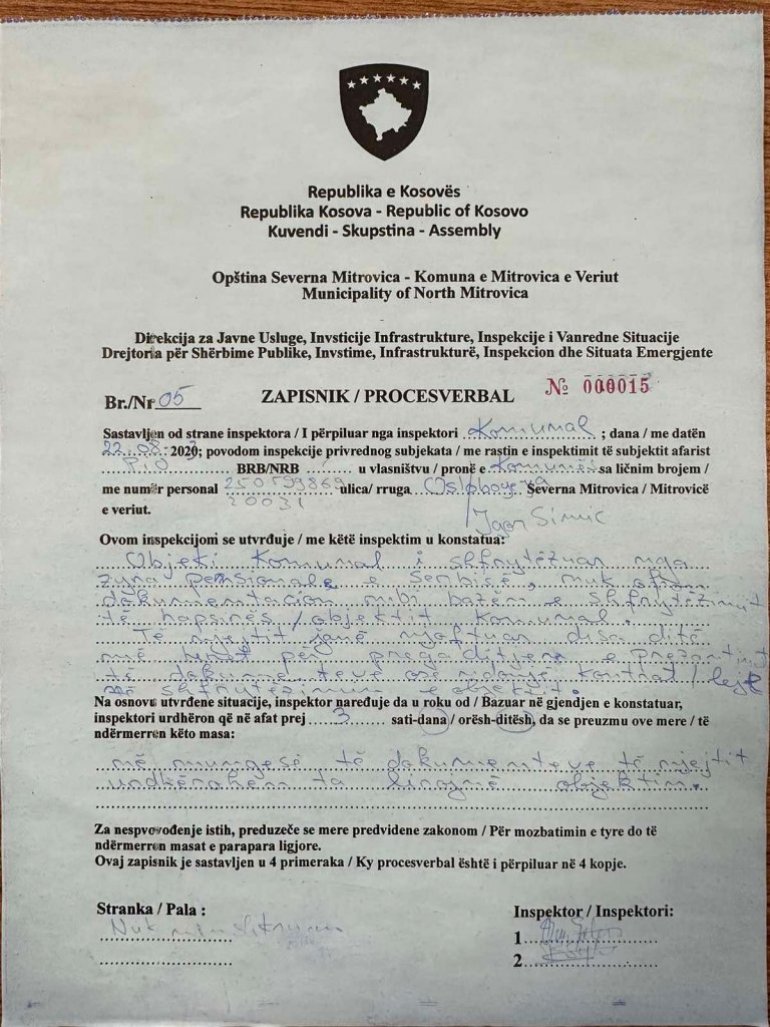 Republika e Kosovës
Republika Kosova - Republic of Kosovo
Kuvendi - Skupstina - Assembly
Opština Severna Mitrovica - Komuna e Mitrovica e Veriut
Municipality of North Mitrovica
Direkcija za Javne Usluge, Invsticije Infrastrukture, Inspekcije i Vanredne Situacije
Drejtoria për Shërbime Publike, Invstime, Infrastrukturë, Inspekcion dhe Situata Emergjente
Br./Nr 05 ZAPISNIK / PROCESVERBAL № 000015
Sastavljen od strane inspektora / I përpiluar nga inspektori Komunal ; dana / me datën
22.08. 2020; povodom inspekcije privrednog subjekata / me rastin e inspektimit të subjektit afarist
P.I.O. BRB/NRB / u vlasništvu / pronë e Komunës sa ličnim brojem /
me numër personal 250599869 ulica/ rruga Severna Mitrovica / Mitrovicë
20031
e veriut.
Ovom inspekcijom se utvrđuje / me këtë inspektim u konstatua:
Objekti Komunal i shfrytëzuar nga
zyra pensionale e Serbisë, nuk
dokumentacion mbi bazën e shfrytëzimit
të hapsirës / objektit Komunal.
Të njejtit janë njoftuar disa ditë
më herët për pregaditjen e prezantimit
të dokumenteve ose ndonjë kontrat / lejë
shfrytëzimin e objektit.
Na osnovu utvrđene situacije, inspektor naređuje da u roku od / Bazuar në gjendjen e konstatuar,
inspektori urdhëron që në afat prej 3 sati-dana / orësh-ditësh, da se preuzmu ove mere / të
ndërmerren këto masa:
në mungesë të dokumenteve të njejtit
undkërahem ta lirojnë objektin.
Za nespvovođenje istih, preduzeče se mere predvidene zakonom / Për mozbatimin e tyre do të
ndërmerren masat e parapara ligjore.
Ovaj zapisnik je sastavljen u 4 primeraka / Ky procesverbal është i përpiluar në 4 kopje.
Stranka / Pala : Inspektor / Inspektori:
Nuk
1
2